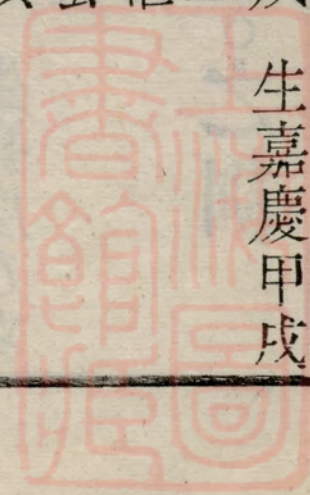 生嘉慶甲戌
上海圖
書館藏